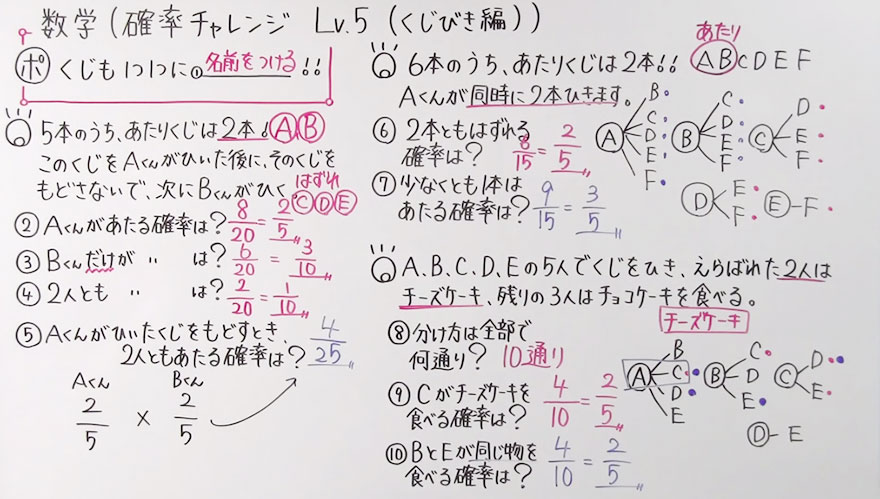 数学(確率チャレンジ Lv.5 (くじびき編))
ポ くじも1つ1つにの名前をつける!!
5本のうち、あたりくじは2本! A,B
このくじをAくんがひいた後に、そのくじを
もどさないで、次にBくんがひく。
はずれ
C D E
② Aくんがあたる確率は? 8/20 = 2/5
③ Bくんだけが 〃 は? 6/20 = 3/10
④ 2人とも 〃 は? 2/20 = 1/10
⑤ Aくんがひいたくじをもどすとき、
2人ともあたる確率は? 4/25
Aくん Bくん
2/5 × 2/5
6本のうち、あたりくじは2本!!
あたり
A B C D E F
Aくんが同時に2本ひきます。
⑥ 2本ともはずれる
確率は? 8/15 = 2/5
⑦ 少なくとも1本は
あたる確率は? 9/15 = 3/5
A B C D E F
B C D E F
C D E F
D E F
E-F
A、B、C、D、Eの5人でくじをひき、えらばれた2人は
チーズケーキ、残りの3人はチョコケーキを食べる。
⑧ 分け方は全部で
何通り? 10通り
⑨ Cがチーズケーキを
食べる確率は? 4/10 = 2/5
⑩ BとEが同じ物を
食べる確率は? 4/10 = 2/5
チーズケーキ
A B C D E
B C D E
C D E
D-E